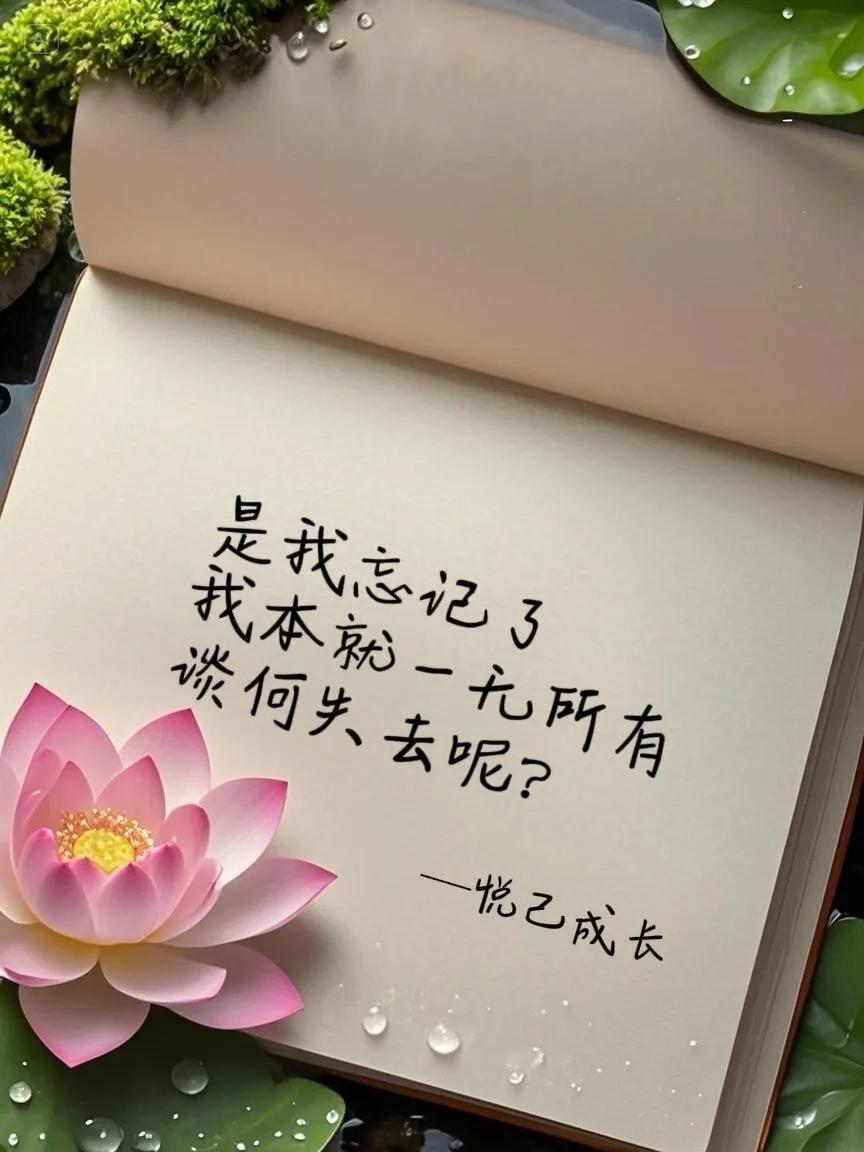 是我忘记了
我本就一无所有
谈何失去呢?
——悦己成长